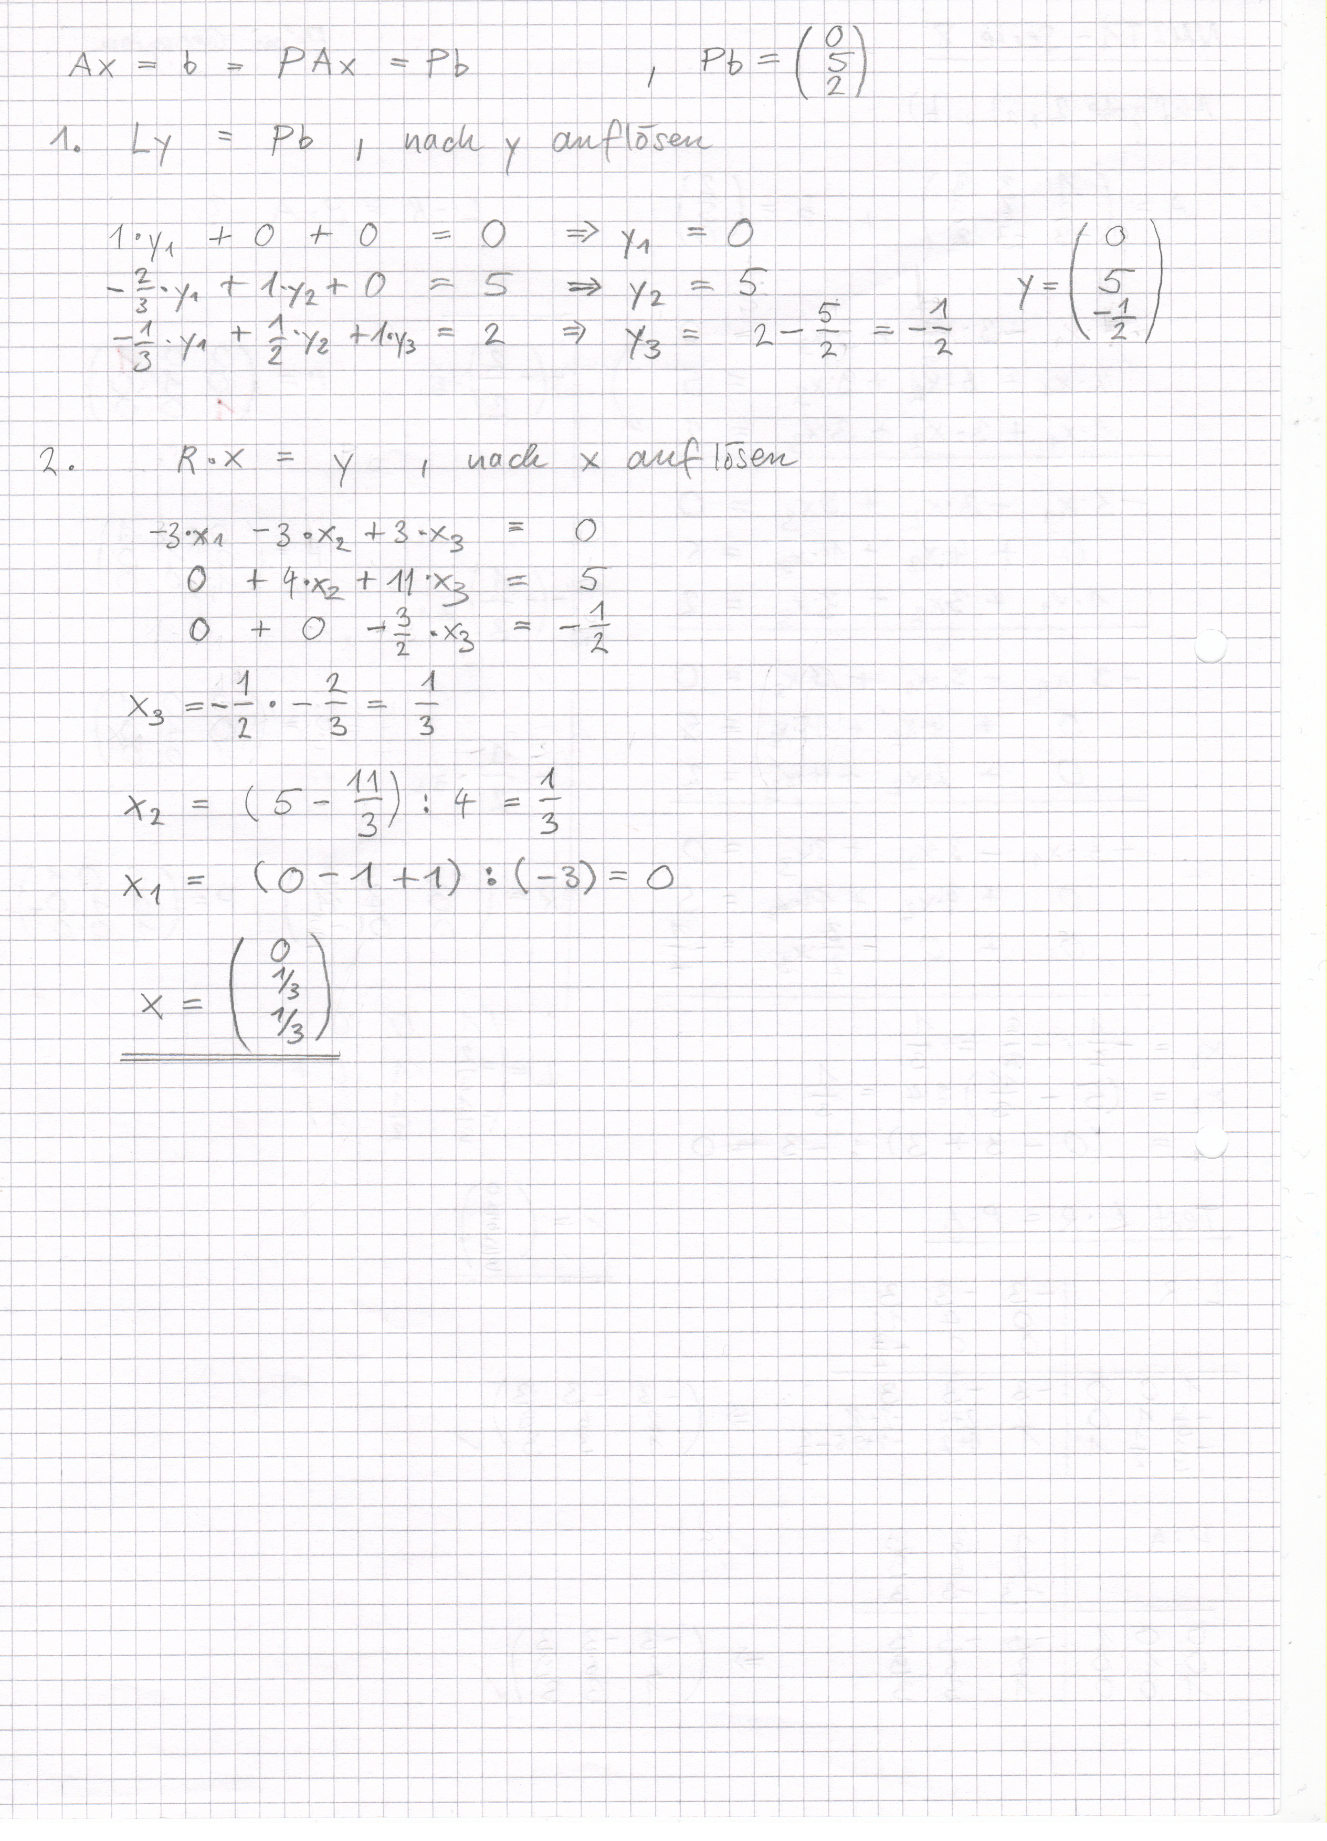 Ax = b = PAx = Pb , Pb = (0 5 2)
1. Ly = Pb , nach y auflösen
1·y₁ + 0 + 0 = 0 ⇒ y₁ = 0
-2/3·y₁ + 1·y₂ + 0 = 5 ⇒ y₂ = 5
-1/3·y₁ + 1/2·y₂ + 1·y₃ = 2 ⇒ y₃ = 2 - 5/2 = -1/2
y = (0 5 -1/2)
2. R·x = y , nach x auflösen
-3·x₁ -3·x₂ + 3·x₃ = 0
0 + 4·x₂ + 11·x₃ = 5
0 + 0 -3/2·x₃ = -1/2
x₃ = -1/2 · -2/3 = 1/3
x₂ = (5 - 11/3) : 4 = 1/3
x₁ = (0 - 1 + 1) : (-3) = 0
x = (0 1/3 1/3)